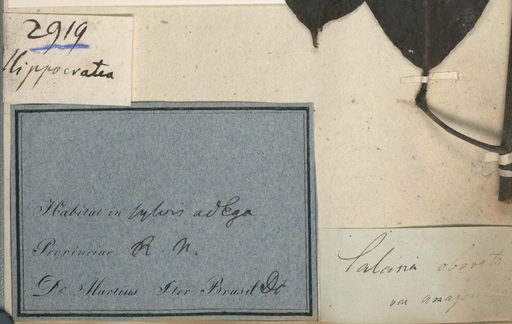 2919
Hippocratea
Habitat in sylvis ad Ega
Provinciae R. N.
Dr Martius Iter Brasil
Salacia obovat